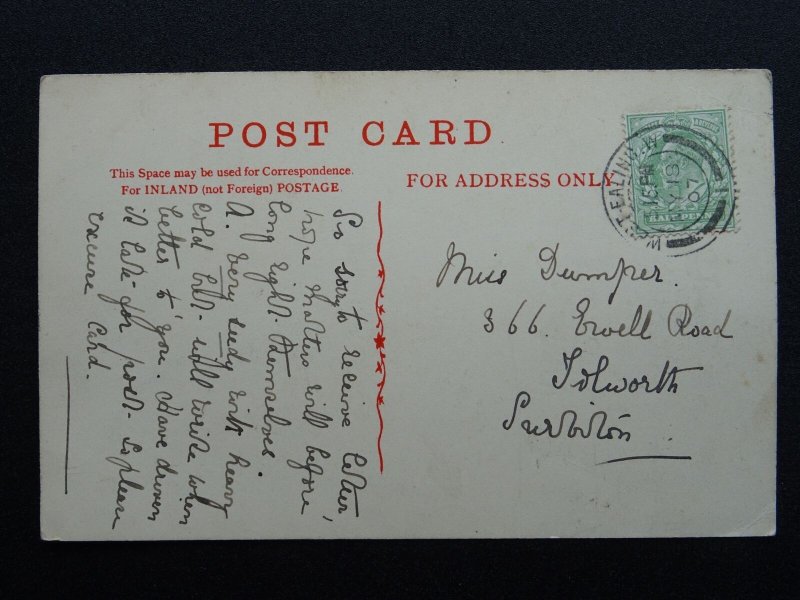 POST CARD
This Space may be used for Correspondence.
For INLAND (not Foreign) POSTAGE
FOR ADDRESS ONLY
EALING.W
07
HALF PENNY
So sorry to receive letter,
hope matters will before
long right themselves.
A. very seedy with heavy
cold but will write when
better to you. Have driven
it late for post so please
excuse Card.
Miss Dumper.
366. Ewell Road
Tolworth
Surbiton